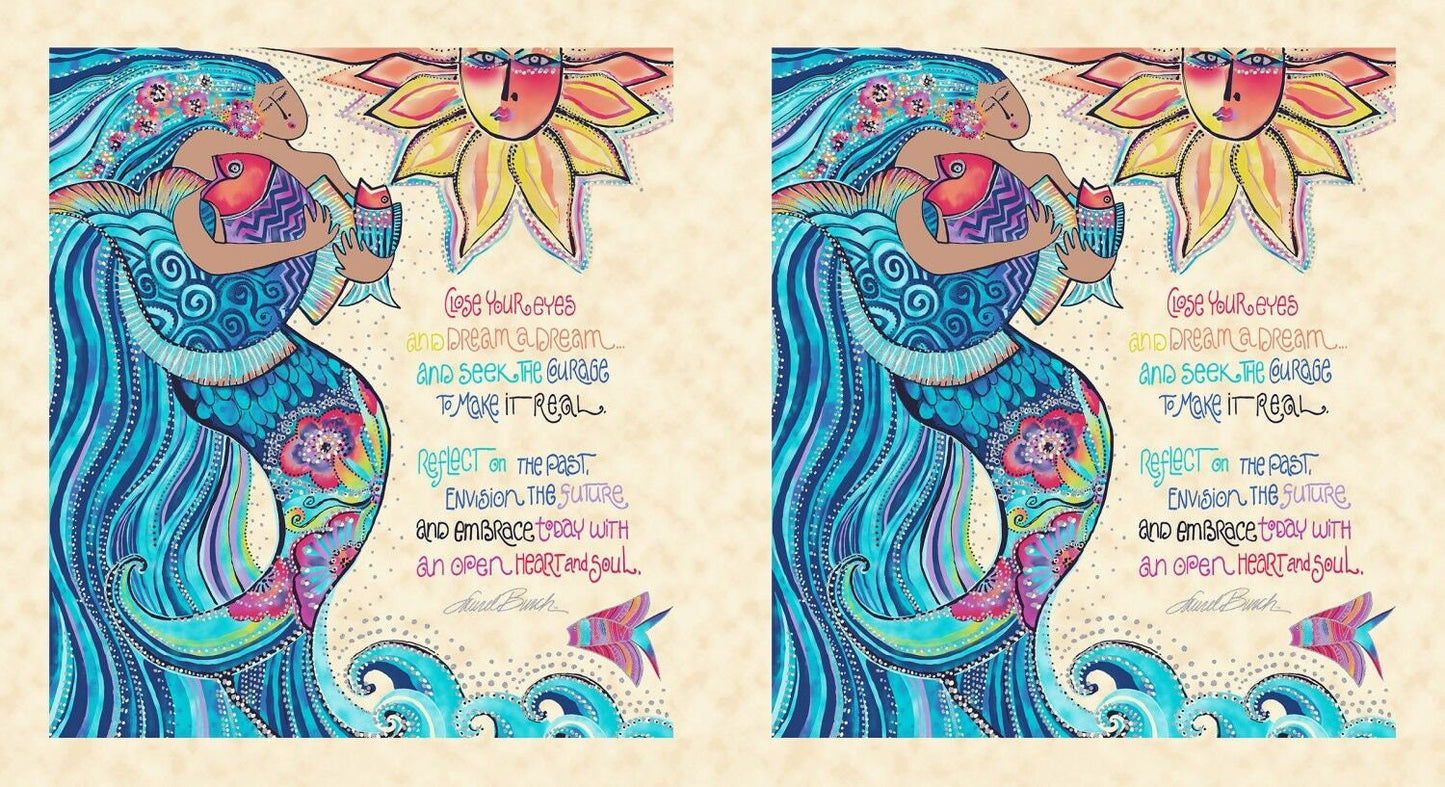 Close your eyes
and Dream a Dream...
and seek the Courage
to Make it Real.
Reflect on the past,
Envision the future
and embrace today with
an open Heart and Soul.
Laurel Burch
Close your eyes
and Dream a Dream...
and seek the Courage
to Make it Real.
Reflect on the past,
Envision the future
and embrace today with
an open Heart and Soul.
Laurel Burch